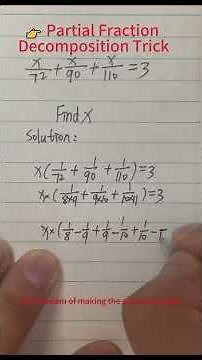 👉 Partial Fraction
Decomposition Trick
x/72 + x/90 + x/110 = 3
Find x
Solution:
x(1/72 + 1/90 + 1/110) = 3
x×(1/8×9 + 1/9×10 + 1/10×11) = 3
x×(1/8 - 1/9 + 1/9 - 1/10 + 1/10 - 1
of making the